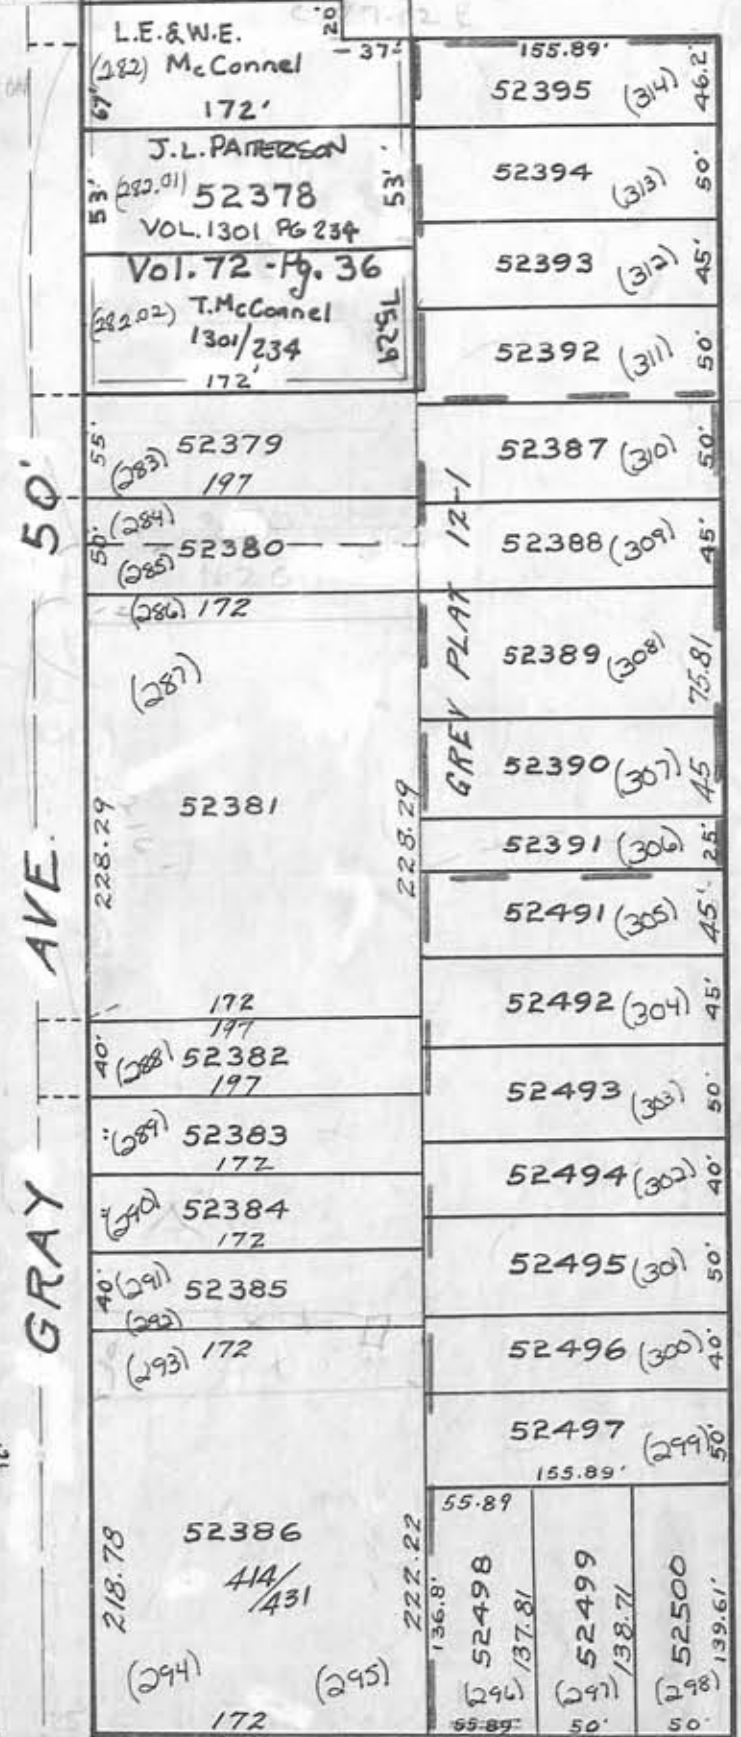 GRAY AVE. 50'
20'
L.E. & W.E.
- 37'
(282) McConnel
67'
172'
J.L. PATTERSON
53' (282.01) 52378 53'
VOL. 1301 PG 234
Vol. 72 - Pg. 36
(282.02) T. McConnel
1301/234
75.29
172'
55' (283) 52379
197
(284)
50' 52380
(285)
(286) 172
(287)
52381
228.29 228.29
172
197
40' (288) 52382
197
" (289) 52383
172
" (290) 52384
172
40' (291) 52385
(292)
(293) 172
52386
218.78 222.22
414/431
(294) (295)
172
GREY PLAT 12-1
155.89'
52395 (314) 46.2'
52394 (313) 50'
52393 (312) 45'
52392 (311) 50'
52387 (310) 50'
52388 (309) 45'
52389 (308) 75.81
52390 (307) 45
52391 (306) 25'
52491 (305) 45'
52492 (304) 45'
52493 (303) 50'
52494 (302) 40'
52495 (301) 50'
52496 (300) 40'
52497 (299) 50'
155.89'
55.89
136.8' 52498 137.81
(296)
55.89
52499 138.71
(297)
50'
52500 139.61'
(298)
50'